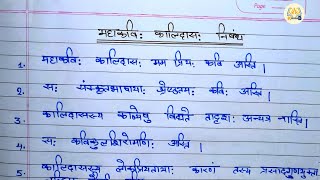 Page.......
महाकविः कालिदासः निबंध
1. महाकविः कालिदासः मम प्रियः कवि अस्ति।
2. सः संस्कृतभाषायाः श्रेष्ठतमः कविः अस्ति।
3. कालिदासस्य काव्येषु विद्यते तादृशः अन्यत्र नास्ति।
4. सः कविकुलशिरोमणिः अस्ति।
5. कालिदासस्य लोकप्रियतायाः कारणं तस्य प्रसादगुणयुक्ता